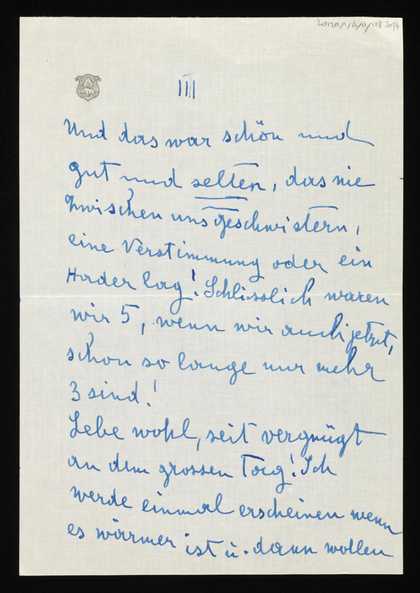 III
Und das war schön und
gut und selten, das nie
zwischen uns geschwistern,
eine Verstimmung oder ein
Hader lag! Schliesslich waren
wir 5, wenn wir auch jetzt,
schon so lange nur mehr
3 sind!
Lebe wohl, seit vergnügt
an dem grossen Tag! Ich
werde einmal erscheinen wenn
es wärmer ist u. dann wollen